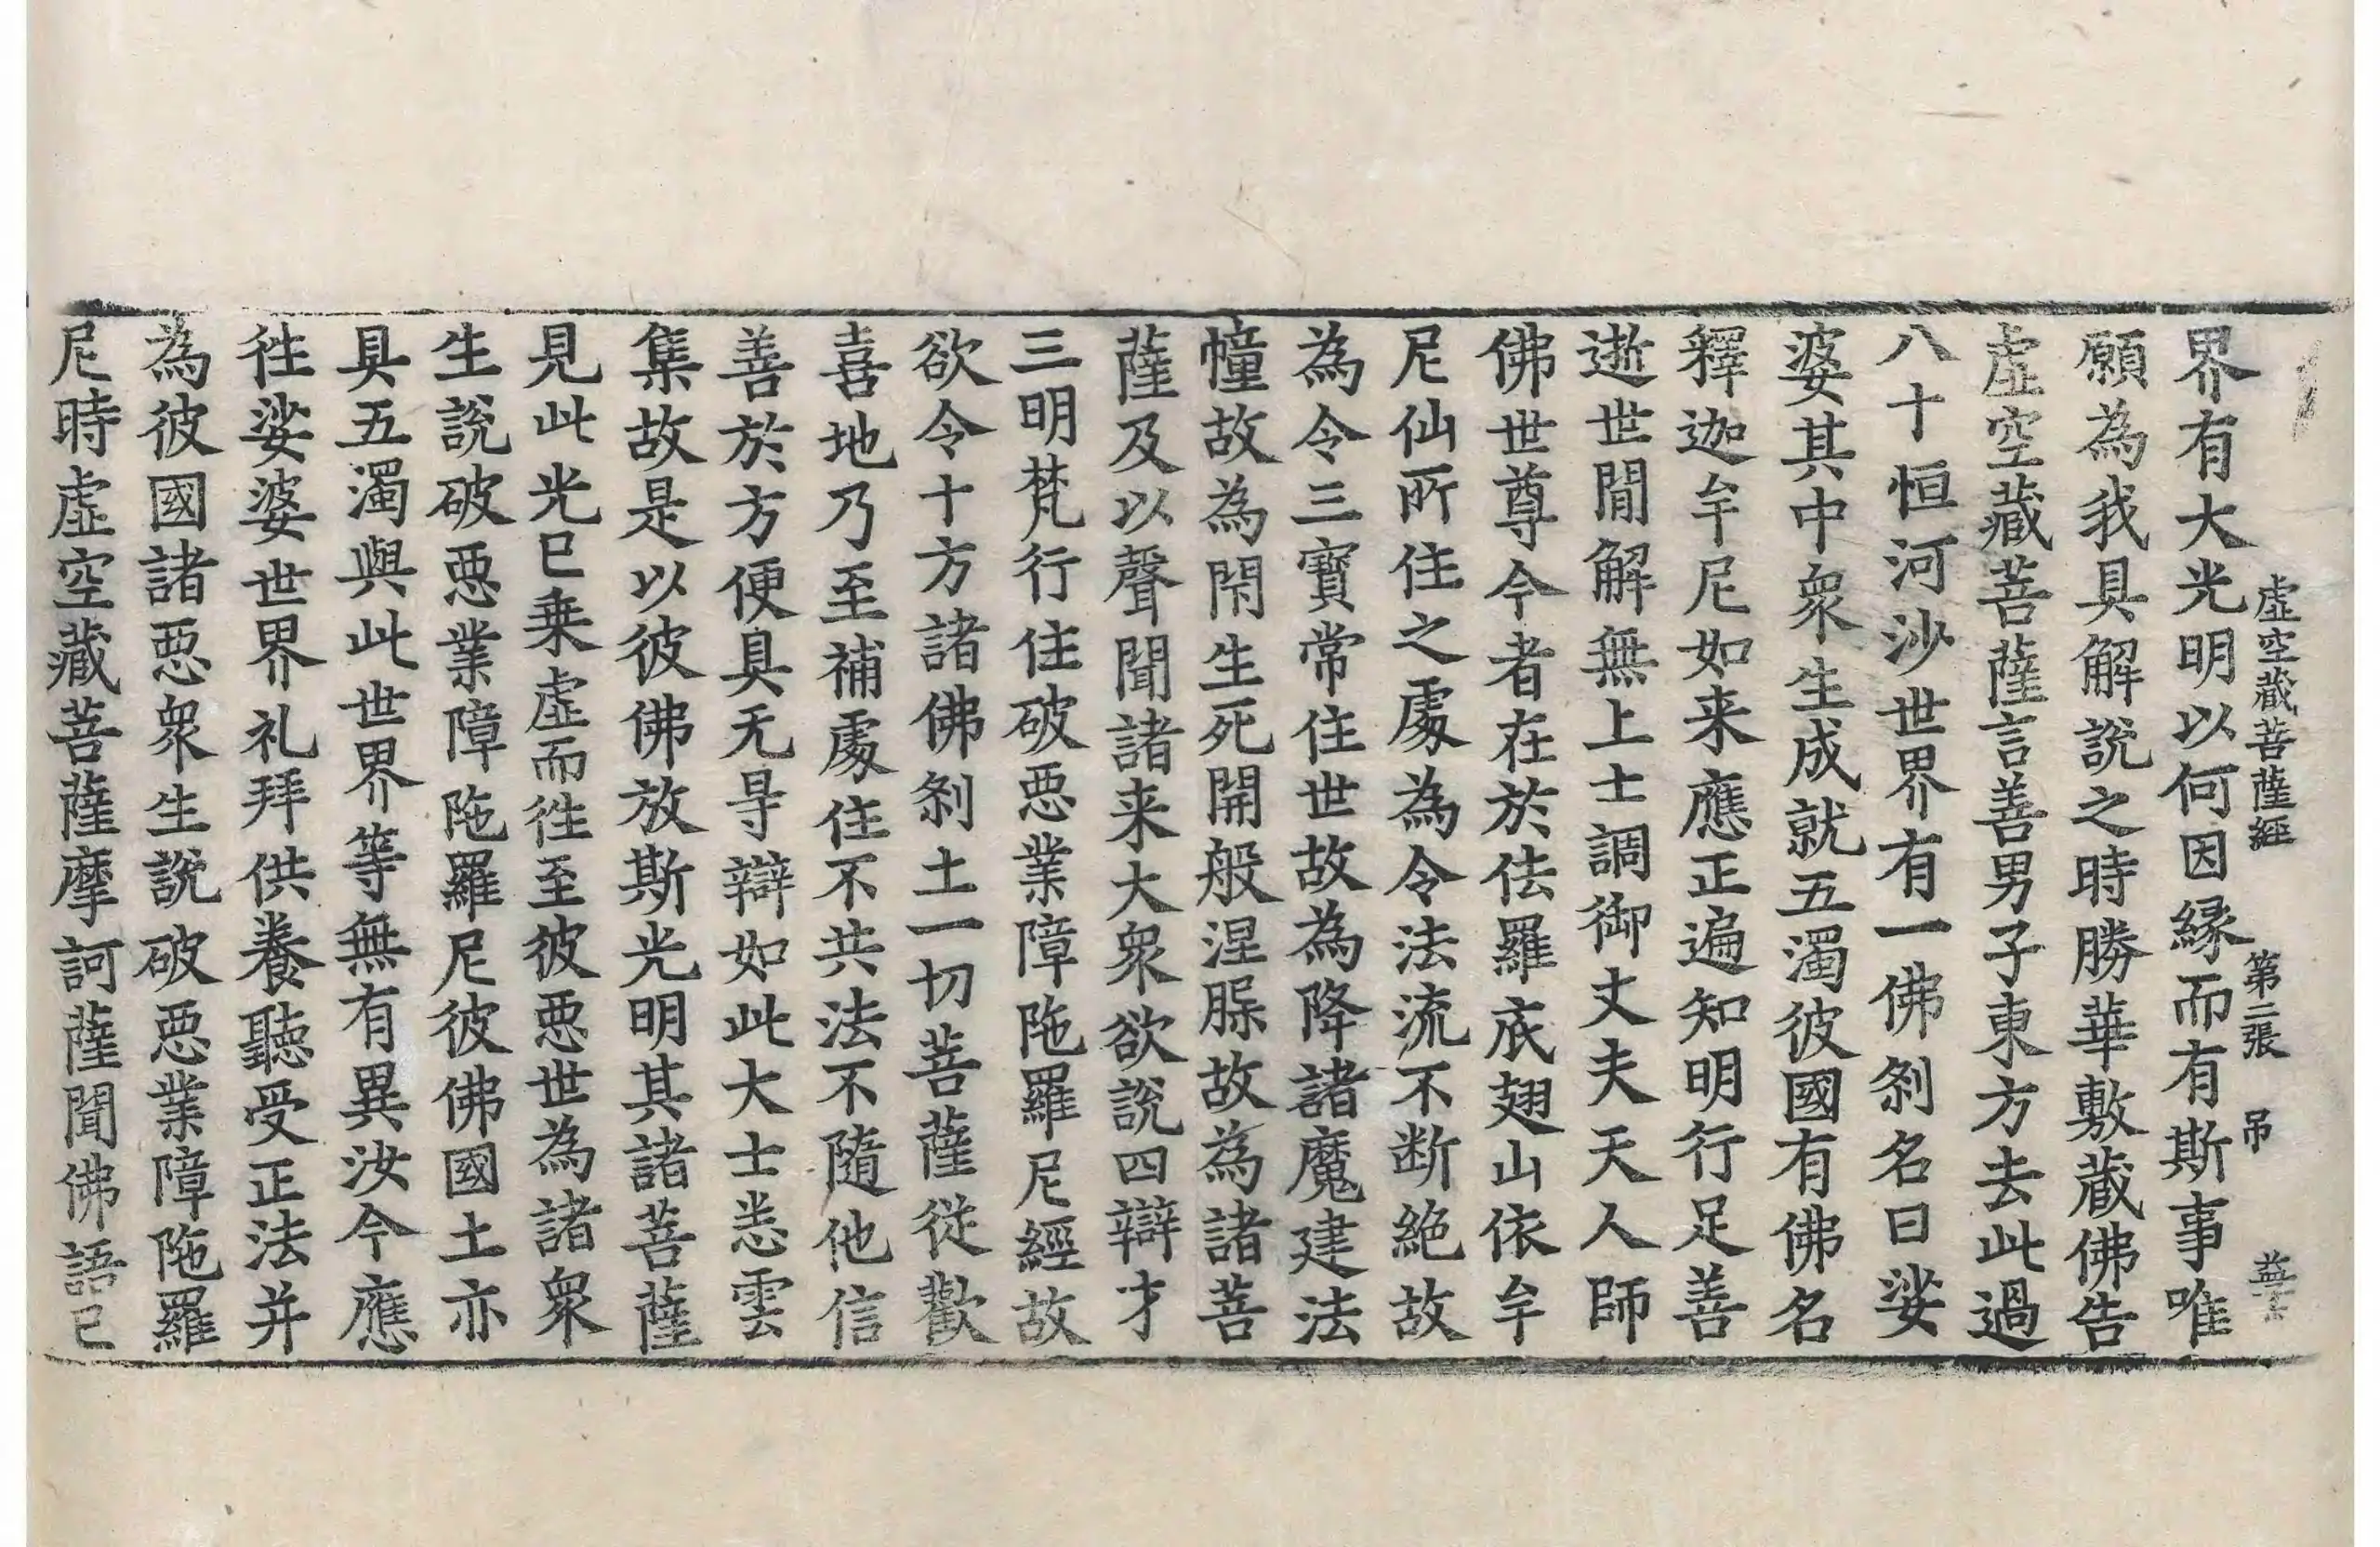 虛空藏菩薩經　第二張　吊
界有大光明以何因緣而有斯事唯
願為我具解說之時勝華敷藏佛告
虛空藏菩薩言善男子東方去此過
八十恒河沙世界有一佛剎名曰娑
婆其中衆生成就五濁彼國有佛名
釋迦牟尼如来應正遍知明行足善
逝世間解無上士調御丈夫天人師
佛世尊今者在於佉羅底翅山依牟
尼仙所住之處為令法流不断絕故
為令三寶常住世故為降諸魔建法
幢故為閇生死開般涅槃故為諸菩
薩及以聲聞諸来大衆欲說四辯才
三明梵行住破惡業障陁羅尼經故
欲令十方諸佛剎土一切菩薩從歡
喜地乃至補處住不共法不隨他信
善於方便具无㝵辯如此大士悉雲
集故是以彼佛放斯光明其諸菩薩
見此光已乗虛而徃至彼惡世為諸衆
生說破惡業障陁羅尼彼佛國土亦
具五濁與此世界等無有異汝今應
徃娑婆世界礼拜供養聽受正法并
為彼國諸惡衆生說破惡業障陁羅
尼時虛空藏菩薩摩訶薩聞佛語已